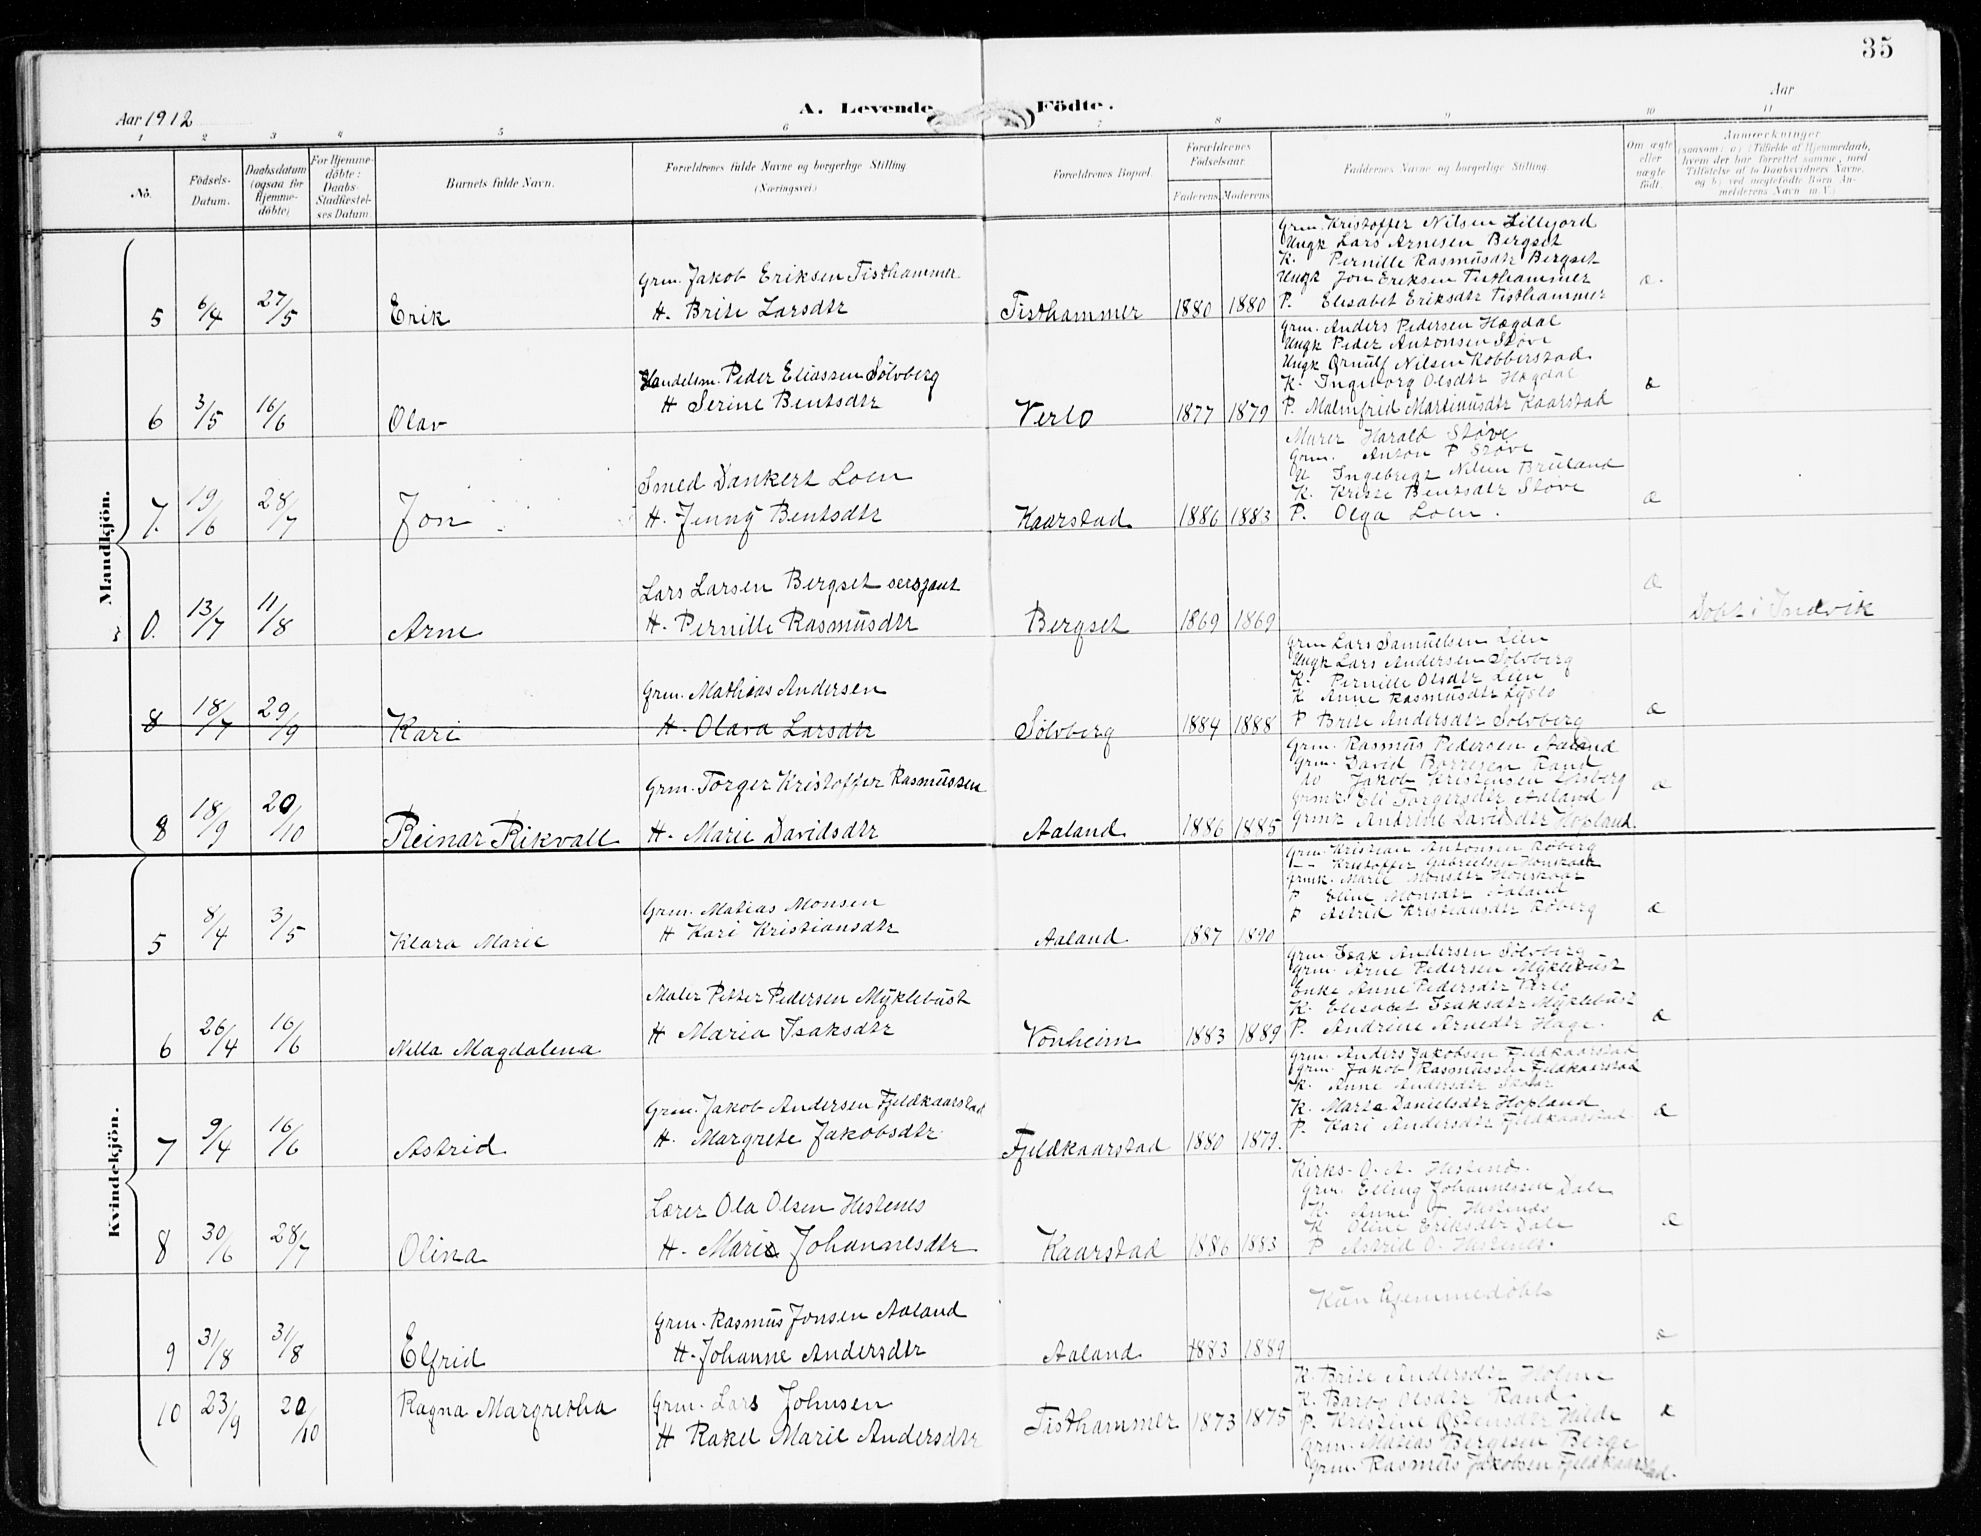 35
Aar 1912
A. Levende Födte.
Aar
1 2 3 4 5 6 7 8 9 10 11
No.
Födsels-Datum.
Daabsdatum (ogsaa for Hjemme-döbte)
For Hjemme-döbte: Daabs-Stadfæstel-ses Datum.
Barnets fulde Navn.
Forældrenes fulde Navne og borgerlige Stilling (Næringsvei.)
Forældrenes Bopæl.
Forældrenes Födselsaar.
Faderens Moderens
Faddernes Navne og borgerlige Stilling.
Om ægte eller uægte födt.
Anmærkninger
(saasom: a) i Tilfælde af Hjemmedaab, hvem der har forrettet samme, med Tilföielse af to Daabsvidners Navne, og b) ved uægtefödte Börn Anmelderens Navn m. V.)
Mandkjön.
5 6/4 27/5 Erik
Grm. Jakob Eriksen Tisthammer
H. Brite Larsdtr
Tisthammer 1880 1880
Grm. Kristoffer Nilsen Lillejord
Ungk Lars Arnesen Bergset
K. Pernille Rasmusdtr Bergset
Ungk Jon Eriksen Tisthammer
P. Elisabet Eriksdtr Tisthammer
æ.
6 3/5 16/6 Olav
Handelsm. Peder Eliassen Sölvberg
H Serine Bentsdtr
Verlo 1877 1879
Grm. Anders Pedersen Hægdal
Ungk Peder Antonsen Støve
Ungk Ørnulf Nilsen Kobberstad
K. Ingeborg Olsdtr Hægdal
P. Malmfrid Martinusdtr Kaarstad
æ
7. 19/6 28/7 Jon
Smed Dankert Loen
H. Jenny Bentsdtr
Kaarstad 1886 1883
Murer Harald Støve
Grm. Anton P Støve
U Ingebrigt Nilsen Bruland
K. Kriste Bentsdtr Støve
P. Olga Loen.
æ
0. 13/7 11/8 Arne
Lars Larsen Bergset sersjant
H. Pernille Rasmusdtr
Bergset 1869 1869
æ
Döpt i Indvik
8 18/7 29/9 Kari
Grm. Mathias Andersen
H. Olava Larsdtr
Sölvberg 1884 1888
Grm Lars Samuelsen Lien
Ungk Lars Andersen Sölvberg
K. Pernille Olsdtr Lien
K Anne Rasmusdtr Lyslo
P Brite Andersdtr Sölvberg
æ
8 18/9 20/10 Reinar Rikvall
Grm. Torger Kristoffer Rasmussen
H. Marie Davidsdtr
Aaland 1886 1885
Grm. Rasmus Pedersen Aaland
Grm. David Börresen Rand
do Jakob Kristensen
Grmk Eli Torgersdtr Aaland
Grmk Andrine Davidsdtr Hopland
æ
Kvindekjön.
5 8/4 3/5 Klara Marie
Grm. Matias Monsen
H Kari Kristiansdtr
Aaland 1887 1890
Grm. Kristian Antonsen Röberg
Kristoffer Gabrielsen
Grmk. Marie Monsdtr Honskaar
P Eline Monsdtr Aaland
P Astrid Kristiansdtr Röberg
æ
6 26/4 16/6 Nella Magdalena
Maler Petter Pedersen Myklebust
H Maria Isaksdtr
Vonheim 1883 1889
Grm Isak Andersen Sölvberg
Grm. Arne Pedersen Myklebust
Enke Anne Pedersdtr Verlo
K. Elisabet Isaksdtr Myklebust
P. Andrine Arnedtr Hage.
æ
7 9/4 16/6 Astrid
Grm. Jakob Andersen Fjeldkaarstad
H. Margrete Jakobsdtr
Fjeldkaarstad 1880 1879.
Grm. Anders Jakobsen Fjeldkaarstad
Grm. Jakob Rasmussen Fjeldkaarstad
K. Anne Andersdtr Skaar
K. Marte Danielsdtr Hopland
P. Kari Andersdtr Fjeldkaarstad
æ
8 30/6 28/7 Olina
Lærer Ola Olsen Hestenes
H. Marie Johannesdtr
Kaarstad 1886 1883
Kirks. O. A. Hestenes.
Grm. Elling Johannessen Dale
K. Anne J Hestenes
K Oline Eriksdtr Dale
P Astrid O. Hestenes.
æ
9 31/8 31/8 Elfrid
Grm. Rasmus Jonsen Aaland
H. Johanne Andersdtr
Aaland 1883 1889
Kun hjemmedöbt
æ
10 23/9 20/10 Ragna Margretha
Grm. Lars Johnsen
H Rakel Marie Andersdtr
Tisthammer 1873 1875
K. Brite Andersdtr Holme
K. Barbo Olsdtr Rand
P. Kristine Østensdtr Hilde
Grm. Matias Bergesen Berge
Grm. Rasmus Jakobsen Fjeldkaarstad.
æ